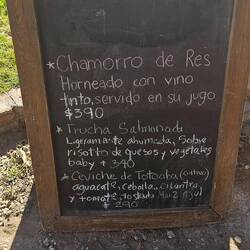 * Chamorro de Res
Horneado con vino
tinto, servido en su jugo
$390
* Trucha Salmonada
Ligeramente ahumada, sobre
risotto de quesos y vegetales
baby $ 340
* Ceviche de Totoaba (cultivo)
aguacate, cebolla, cilantro
y tomate, tostada Maíz Azul
$ 290